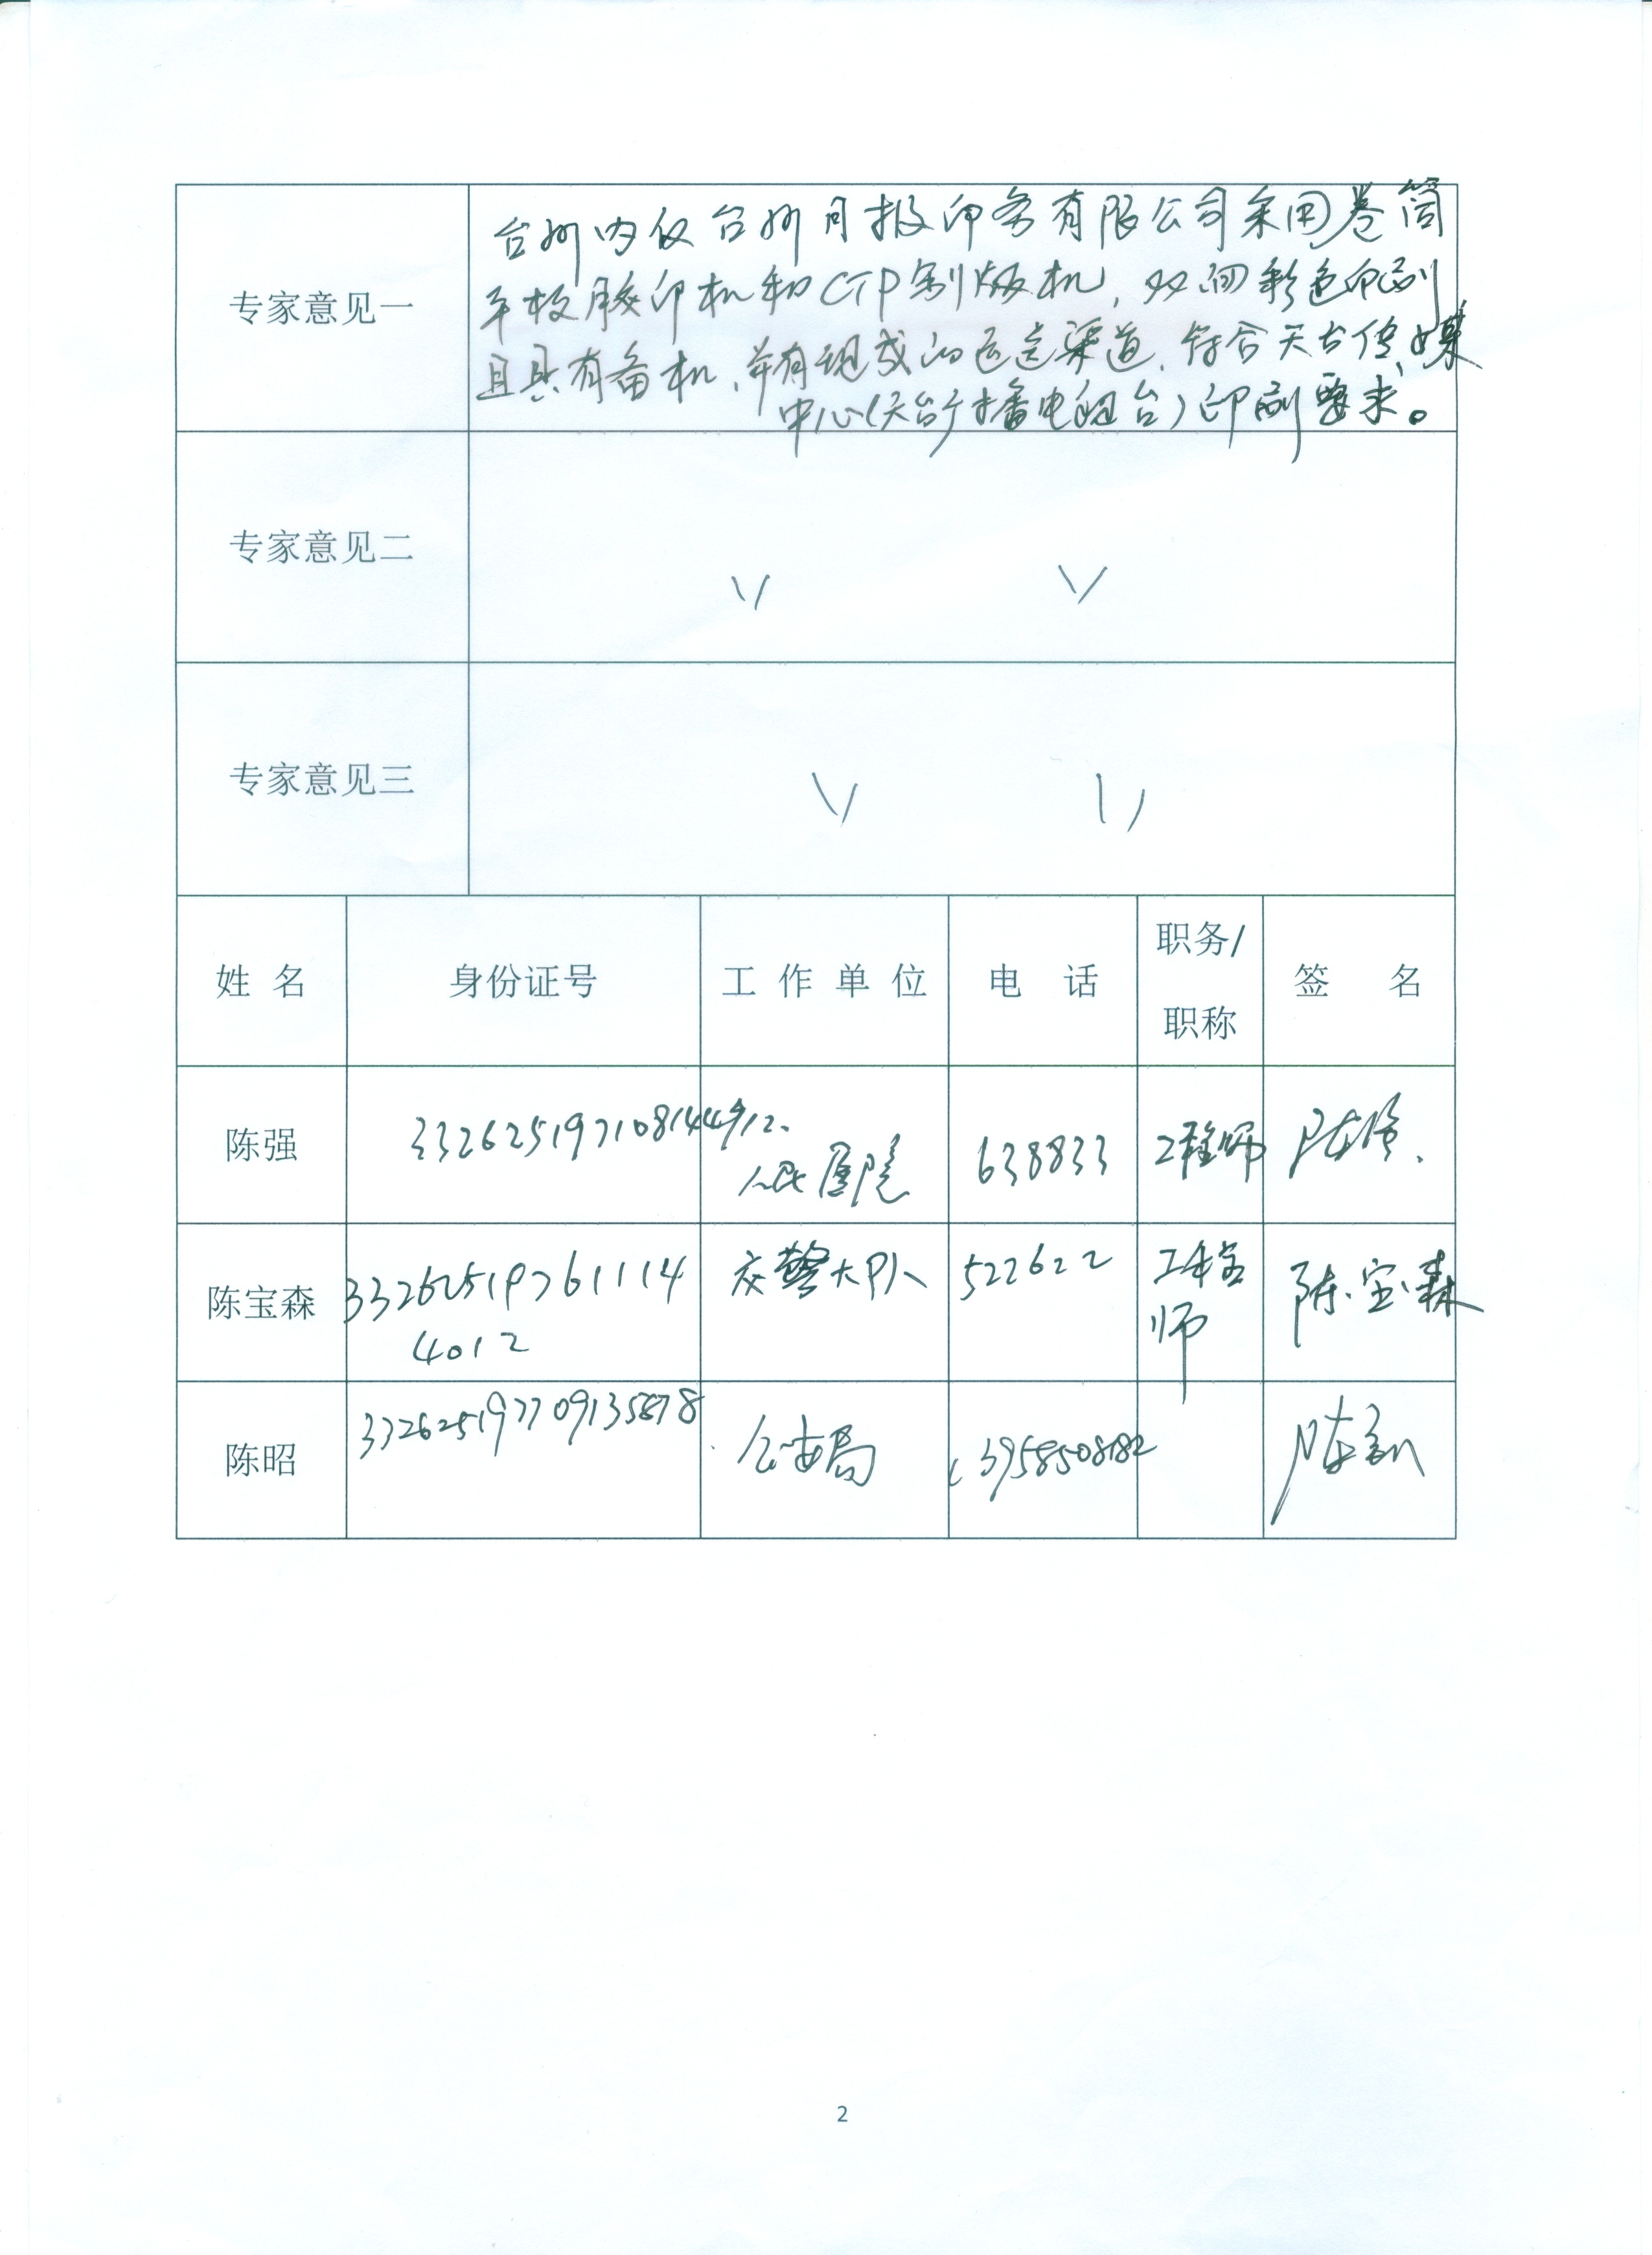 专家意见一
台州内仅台州日报印务有限公司采用卷筒
平板胶印机和CTP制版机,双面彩色印刷
且具有备机,并有现成的运送渠道.符合天台传媒
中心(天台广播电视台)印刷要求。
专家意见二
专家意见三
姓 名 身份证号 工 作 单 位 电 话 职务/职称 签 名
陈强 332625197108144912 人民医院 638833 工程师 陈强
陈宝森 332625197611144012 交警大队 522622 工程师 陈宝森
陈昭 公安局 陈昭
2